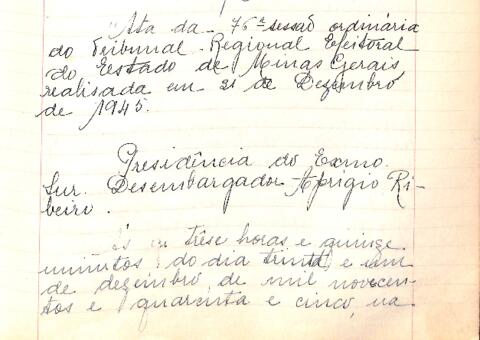 "Ata da 76ª sessão ordinária
do Tribunal Regional Eleitoral
do Eestado de Minas Gerais,
realisada em 31 de Dezembro
de 1945.
Presidência do Exmo.
Snr. Desembargador Aprigio Ri-
beiro.
Ás trêse horas e quinze
minutos do dia trinta e um
de dezembro de mil novecen-
tos e quarenta e cinco, na